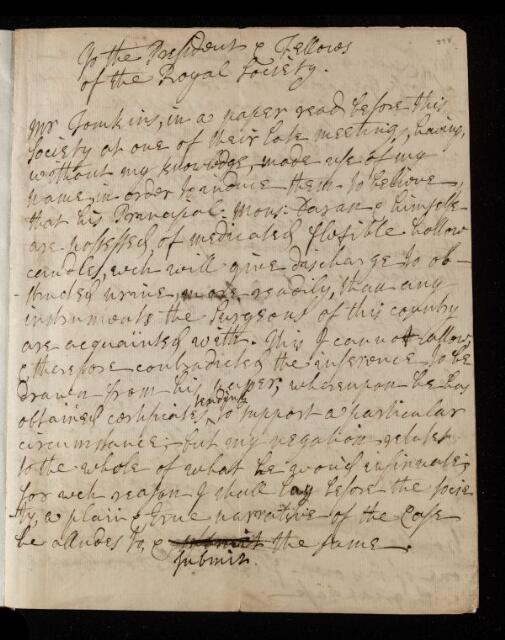 To the President & Fellows
of the Royal Society.
Mr Tomkins, in a paper read before this
Society at one of their late meetings, having,
without my knowledge, made use of my
name, in order to induce them to believe,
that his Principal: Mons: Daran & himself
are possessed of medicated flexible hollow
candles, wch will give discharge to ob-
-structed urine, more readily, than any
instruments the Surgeons of this country
are acquainted with. This I cannot allow,
& therefore contradicted the inference to be
drawn from his paper; whereupon he has
obtained certificates to support a particular
circumstance; but my negation relates
to the whole of what he would insinuate;
for wch reason I shall lay before the socie
ty, a plain & true narrative of the Case
he alludes to, & submit the same.
submit.